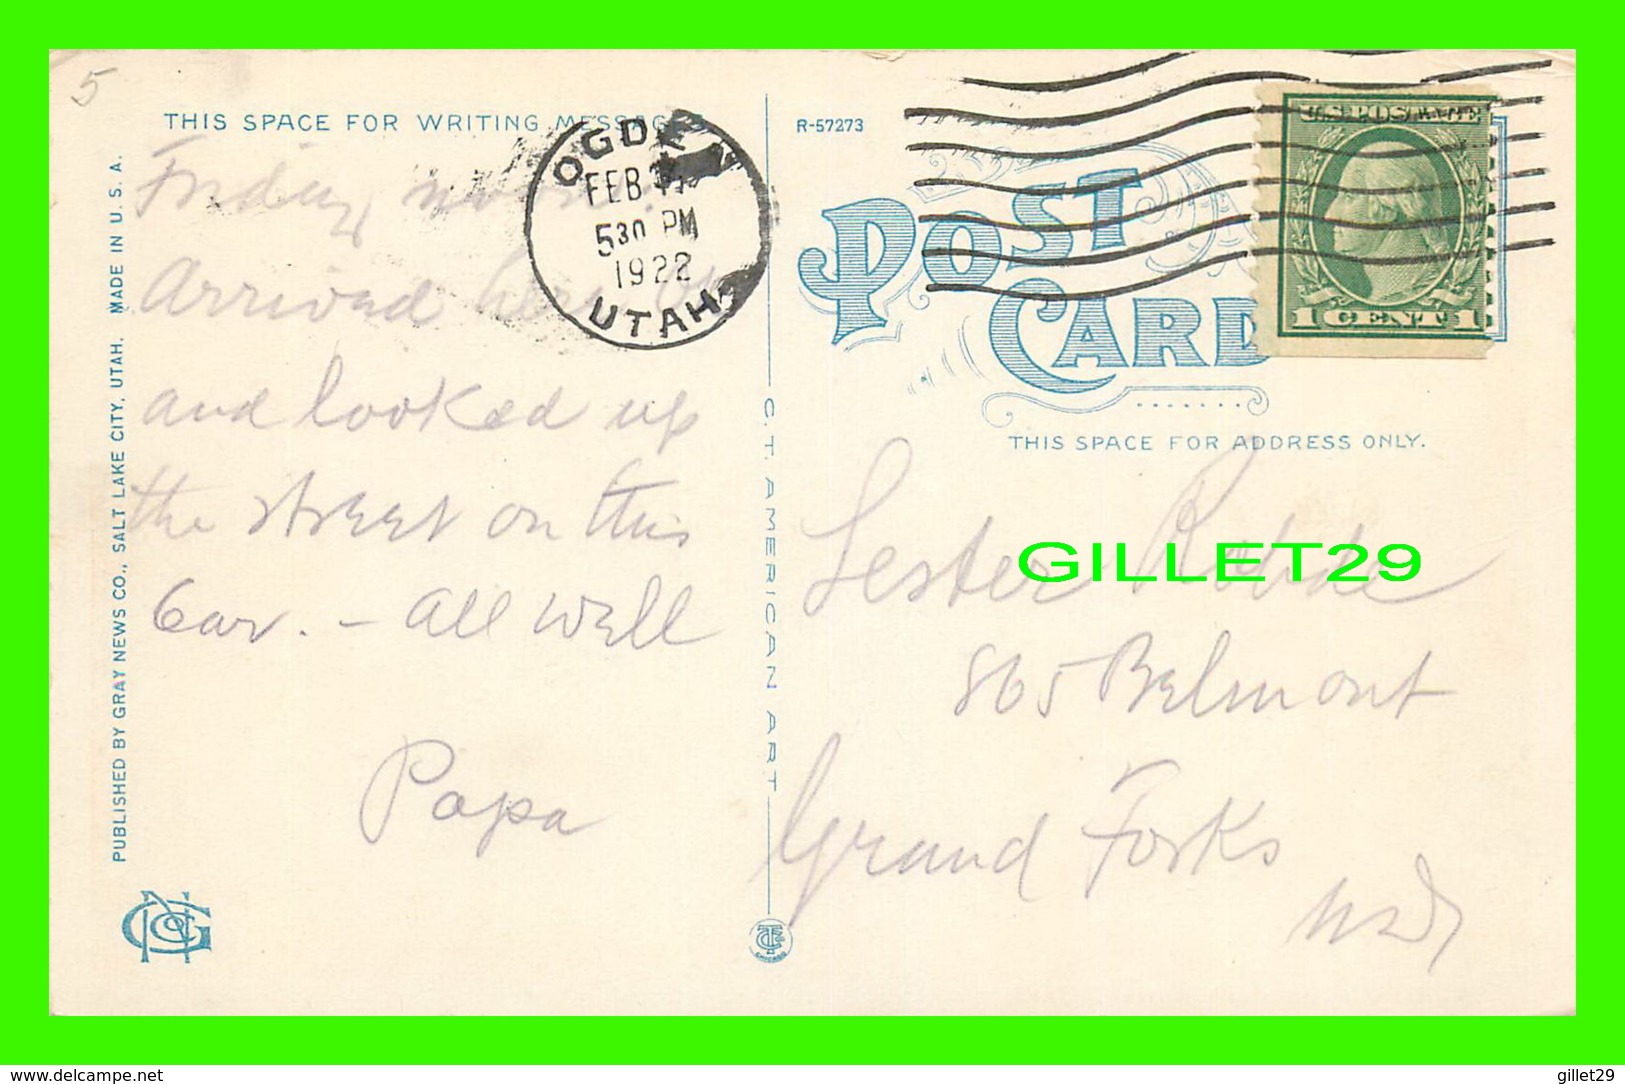 5
THIS SPACE FOR WRITING MESSAGE
Friday
Arrived here
and looked up
the street on this
Car. – All well
Papa
PUBLISHED BY GRAY NEWS CO., SALT LAKE CITY, UTAH. MADE IN U. S. A.
OGDEN
FEB
530 PM
1922
UTAH
C. T. AMERICAN ART
CHICAGO
R-57273
POST CARD
U.S. POSTAGE
1 CENT 1
THIS SPACE FOR ADDRESS ONLY.
Lester
865 Belmont
Grand Forks
N.D.
GILLET29
www.delcampe.net
gillet29